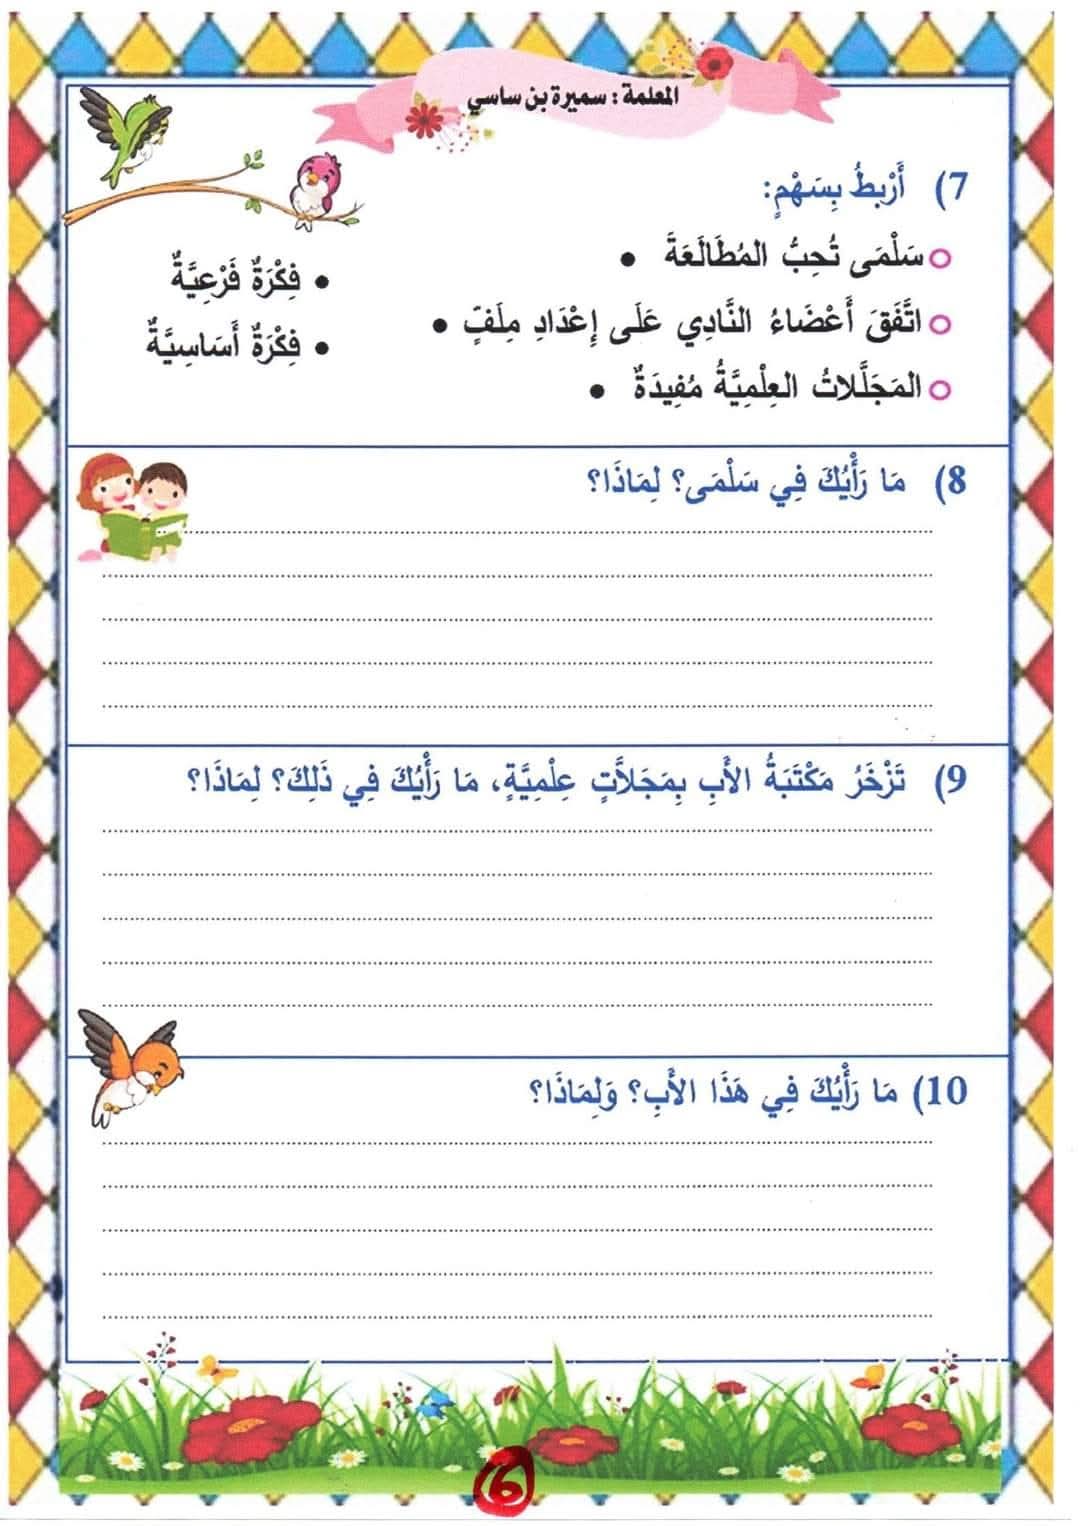 المعلمة : سميرة بن ساسي
7) أَرْبِطُ بِسَهْمٍ:
سَلْمَى تُحِبُّ المُطَالَعَةَ •
• فِكْرَةٌ فَرْعِيَّةٌ
اتَّفَقَ أَعْضَاءُ النَّادِي عَلَى إِعْدَادِ مِلَفٍّ •
• فِكْرَةٌ أَسَاسِيَّةٌ
المَجَلَّلاتُ العِلْمِيَّةُ مُفِيدَةٌ •
8) مَا رَأْيُكَ فِي سَلْمَى؟ لِمَاذَا؟
9) تَزْخَرُ مَكْتَبَةُ الأَبِ بِمَجَلاَّتٍ عِلْمِيَّةٍ، مَا رَأْيُكَ فِي ذَلِكَ؟ لِمَاذَا؟
10) مَا رَأْيُكَ فِي هَذَا الأَبِ؟ وَلِمَاذَا؟
6